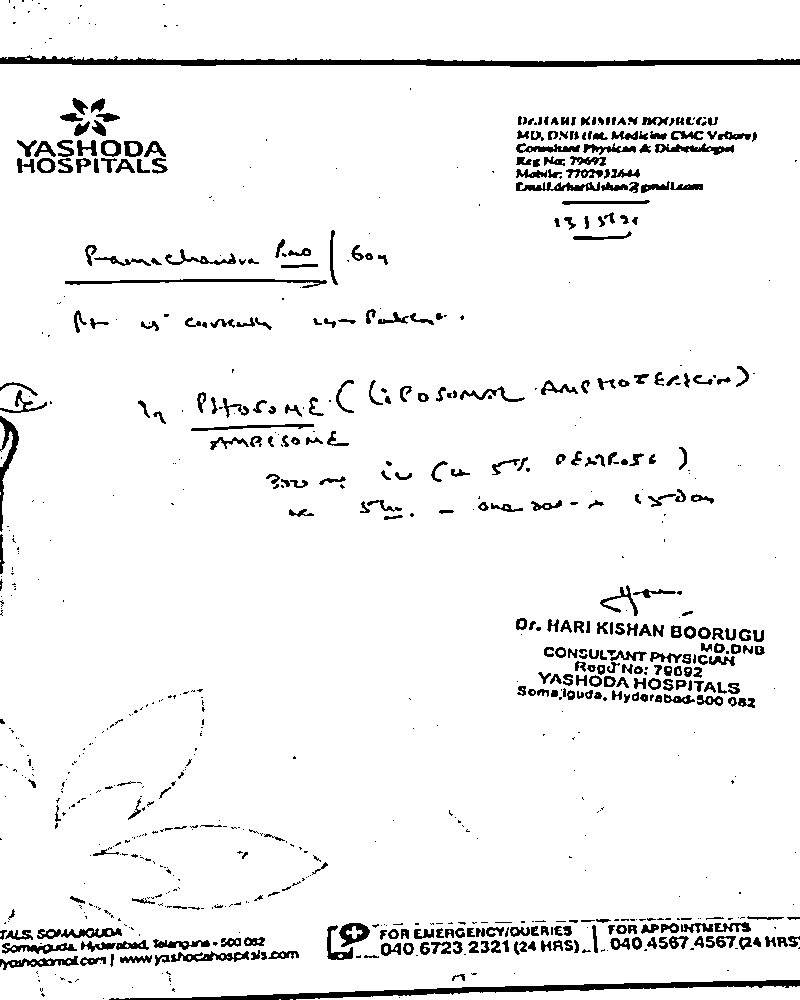 YASHODA
HOSPITALS
Dr.HARI KISHAN BOORUGU
MD, DNB (Int. Medicine CMC Vellore)
Consultant Physican & Diabetologist
Reg No: 79692
Mobile: 7702932644
Email.drharikishan@gmail.com
Ramachandra Rao | 60y
Pt is currently in-Patient.
Rx
PHOSOME (LIPOSOMAL AMPHOTERICIN)
AMBISOME
300 mg iv (in 5% DEXTROSE)
one
Dr. HARI KISHAN BOORUGU
MD.DNB
CONSULTANT PHYSICIAN
Regd No: 79692
YASHODA HOSPITALS
Somajiguda, Hyderabad-500 082
TALS, SOMAJIGUDA
Somajiguda, Hyderabad, Telangana - 500 082
yashodamail.com | www.yashodahospitals.com
FOR EMERGENCY/QUERIES
040 6723 2321 (24 HRS)
FOR APPOINTMENTS
040 4567 4567 (24 HRS